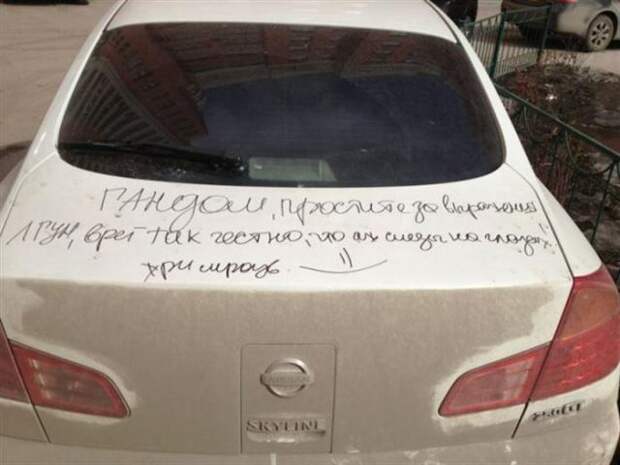 ГАНДОН, простите за выражение
ЛГУН, врет так честно, что аж слезы на глазах!
три мразь
NISSAN
SKYLINE
250GT